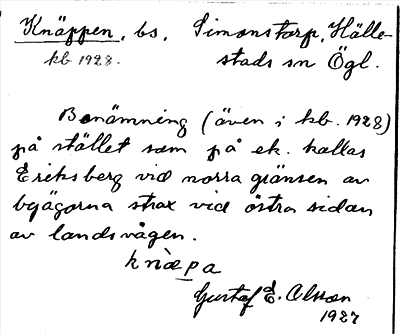 Knäppen, bs. Simonstorp, Hälle-
kb 1928. stads sn Ögl.
Benämning (även i kb. 1928)
på stället som på ek. kallas
Eriksberg vid norra gränsen av
byägorna strax vid östra sidan
av landsvägen.
knäpa
Gustaf E. Olsson
1927